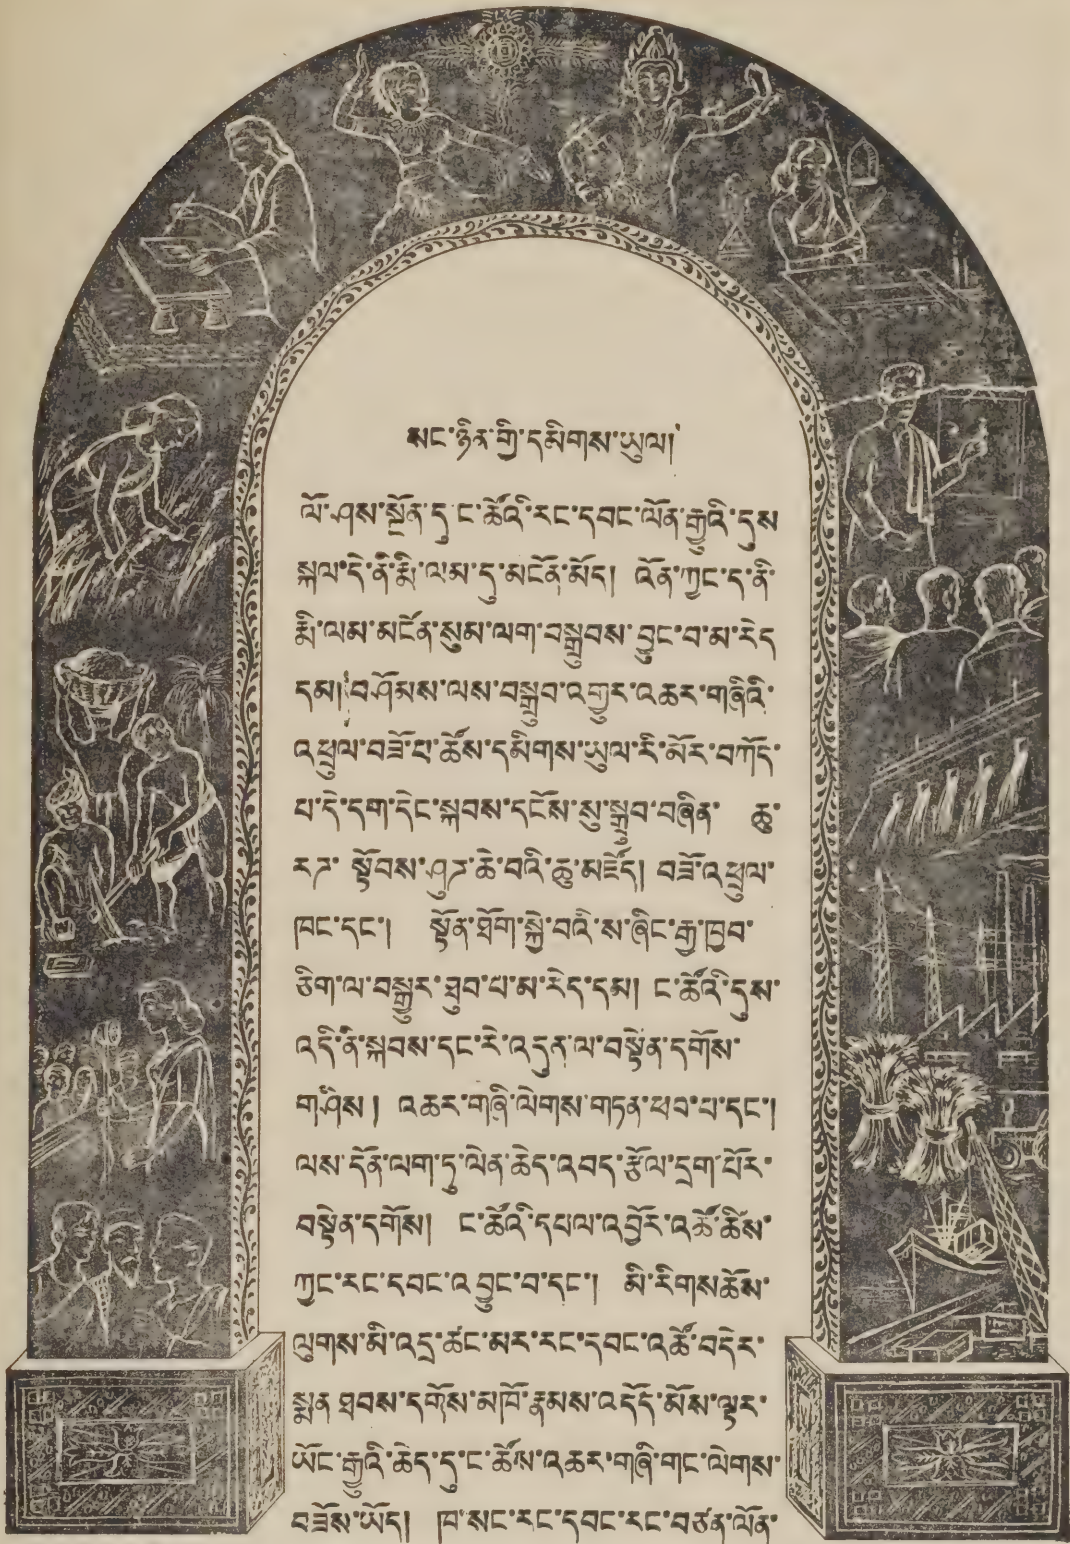 སང་ཉིན་གྱི་དམིགས་ཡུལ།
ལོ་ཤས་སྔོན་དུ་ང་ཚོའི་རང་དབང་ལོན་རྒྱུའི་དུས
སྐལ་དེ་ནི་རྨི་ལམ་དུ་མངོན་མོད། འོན་ཀྱང་ད་ནི་
རྨི་ལམ་མངོན་སུམ་ལག་བསྒྲུབས་བྱུང་བ་མ་རེད
དམ། བཤོམས་ལས་བསྒྲུབ་འགྱུར་འཆར་གཞིའི་
འཕྲུལ་བཟོ་པ་ཚོས་དམིགས་ཡུལ་རི་མོར་བཀོད་
པ་དེ་དག་དེང་སྐབས་དངོས་སུ་སྒྲུབ་བཞིན་ ཆུ་
རཊ་ སྟོབས་ཤུཊ་ཆེ་བའི་ཆུ་མཛོད། བཟོ་འཕྲུལ་
ཁང་དང་། སྟོན་ཐོག་སྐྱེ་བའི་ས་ཞིང་རྒྱ་ཁྱབ་
ཅིག་ལ་བསྒྱུར་ཐུབ་པ་མ་རེད་དམ། ང་ཚོའི་དུས་
འདི་ནི་སྐབས་དང་རེ་འདུན་ལ་བསྟེན་དགོས་
གཤིས། འཆར་གཞི་ལེགས་གཏན་ཕབ་པ་དང་།
ལས་དོན་ལག་ཏུ་ལེན་ཆེད་འབད་རྩོལ་དྲག་པོར་
བསྟེན་དགོས། ང་ཚོའི་དཔལ་འབྱོར་འཚོ་ཆིས་
ཀྱང་རང་དབང་འབྱུང་བ་དང་། མི་རིགས་ཆོས་
ལུགས་མི་འདྲ་ཚང་མར་རང་དབང་འཚོ་བདེར་
སྨན་ཐབས་དགོས་མཁོ་རྣམས་འདོད་མོས་ལྟར་
ཡོང་རྒྱུའི་ཆེད་དུ་ང་ཚོས་འཆར་གཞི་གང་ལེགས་
བཟོས་ཡོད། ཁ་སང་རང་དབང་རང་བཙན་ལོན་